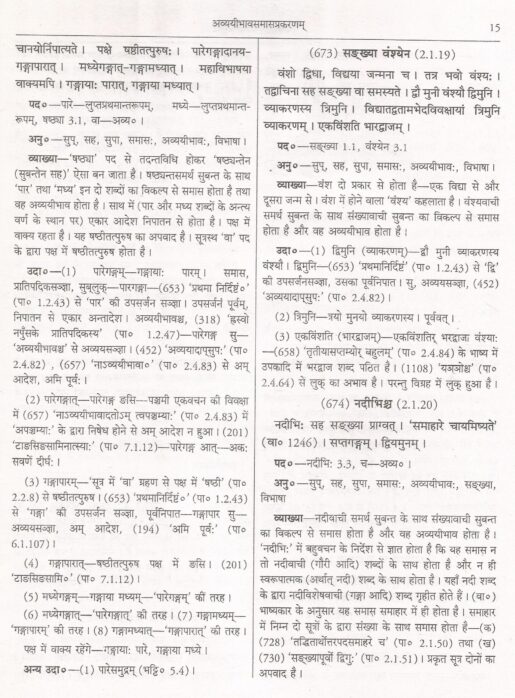 अव्ययीभावसमासप्रकरणम्
15
चानयोर्निपात्यते। पक्षे षष्ठीतत्पुरुषः। पारेगङ्गादानय-
गङ्गापारात्। मध्येगङ्गात्-गङ्गामध्यात्। महाविभाषया
वाक्यमपि। गङ्गायाः पारात्, गङ्गाया मध्यात्।
पद०—पारे—लुप्तप्रथमान्तरूपम्, मध्ये—लुप्तप्रथमान्त-
रूपम्, षष्ठ्या 3.1, वा—अव्य०।
अनु०—सुप्, सह, सुपा, समासः, अव्ययीभावः, विभाषा।
व्याख्या—'षष्ठ्या' पद से तदन्तविधि होकर 'षष्ठ्यन्तेन
(सुबन्तेन सह)' ऐसा बन जाता है। षष्ठ्यन्तसमर्थ सुबन्त के साथ
'पार' तथा 'मध्य' इन दो शब्दों का विकल्प से समास होता है तथा
वह अव्ययीभाव होता है। साथ में (पार और मध्य शब्दों के अन्त्य
वर्ण के स्थान पर) एकार आदेश निपातन से होता है। पक्ष में
वाक्य रहता है। यह षष्ठीतत्पुरुष का अपवाद है। सूत्रस्थ 'वा' पद
के द्वारा पक्ष में षष्ठीतत्पुरुष होता है।
उदा०—(1) पारेगङ्गम्—गङ्गायाः पारम्। समास,
प्रातिपदिकसञ्ज्ञा, सुब्लुक्—पारगङ्गा—(653) 'प्रथमा निर्दिष्टं०'
(पा० 1.2.43) से 'पार' की उपसर्जन सञ्ज्ञा। उपसर्जनं पूर्वम्,
निपातन से एकार अन्तादेश। अव्ययीभावश्च, (318) 'ह्रस्वो
नपुंसके प्रातिपदिकस्य' (पा० 1.2.47)—पारेगङ्ग सु—
'अव्ययीभावश्च' से अव्ययसञ्ज्ञा। (452) 'अव्ययादाप्सुपः' (पा०
2.4.82), (657) 'नाऽव्ययीभावा०' (पा० 2.4.83) से अम्
आदेश, अमि पूर्वः।
(2) पारेगङ्गात्—पारेगङ्ग ङसि—पञ्चमी एकवचन की विवक्षा
में (657) 'नाऽव्ययीभावादतोऽम् त्वपञ्चम्याः' (पा० 2.4.83) में
'अपञ्चम्याः' के द्वारा निषेध होने से अम् आदेश न हुआ। (201)
'टाङसिङसामिनात्स्याः' (पा० 7.1.12)—पारेगङ्ग आत्—अकः
सवर्णे दीर्घः।
(3) गङ्गापारम्—'सूत्र में 'वा' ग्रहण से पक्ष में 'षष्ठी' (पा०
2.2.8) से षष्ठीतत्पुरुष। (653) 'प्रथमानिर्दिष्टं०' (पा० 1.2.43)
से 'गङ्गा' की उपसर्जन सञ्ज्ञा, पूर्वनिपात—गङ्गापार सु—
अव्ययसञ्ज्ञा, अम् आदेश, (194) 'अमि पूर्वः' (पा०
6.1.107)।
(4) गङ्गापारात्—षष्ठीतत्पुरुष पक्ष में ङसि। (201)
'टाङसिङसामि०' (पा० 7.1.12)।
(5) मध्येगङ्गम्—गङ्गाया मध्यम्—'पारेगङ्गम्' की तरह।
(6) मध्येगङ्गात्—'पारेगङ्गात्' की तरह। (7) गङ्गामध्यम्—
'गङ्गापारम्' की तरह। (8) गङ्गामध्यात्—'गङ्गापारात्' की तरह।
पक्ष में वाक्य रहेंगे—गङ्गायाः पारे, गङ्गाया मध्ये।
अन्य उदा०—(1) पारेसमुद्रम् (भट्टि० 5.4)।
(673) सङ्ख्या वंश्येन (2.1.19)
वंशो द्विधा, विद्यया जन्मना च। तत्र भवो वंश्यः।
तद्वाचिना सह सङ्ख्या वा समस्यते। द्वौ मुनी वंश्यौ द्विमुनि।
व्याकरणस्य त्रिमुनि। विद्यातद्वतामभेदविवक्षायां त्रिमुनि
व्याकरणम्। एकविंशति भारद्वाजम्।
पद०—सङ्ख्या 1.1, वंश्येन 3.1
अनु०—सुप्, सह, सुपा, समासः, अव्ययीभावः, विभाषा।
व्याख्या—वंश दो प्रकार से होता है—एक विद्या से और
दूसरा जन्म से। वंश में होने वाला 'वंश्य' कहलाता है। वंश्यवाची
समर्थ सुबन्त के साथ संख्यावाची सुबन्त का विकल्प से समास
होता है और वह अव्ययीभाव होता है।
उदा०—(1) द्विमुनि (व्याकरणम्)—द्वौ मुनी व्याकरणस्य
वंश्यौ। द्विमुनि—(653) 'प्रथमानिर्दिष्टं' (पा० 1.2.43) से 'द्वि'
की उपसर्जनसञ्ज्ञा, उसका पूर्वनिपात। सु, अव्ययसञ्ज्ञा, (452)
'अव्ययादाप्सुपः' (पा० 2.4.82)।
(2) त्रिमुनि—त्रयो मुनयो व्याकरणस्य। पूर्ववत्।
(3) एकविंशति (भारद्वाजम्)—एकविंशतिर् भरद्वाजा वंश्याः
—(658) 'तृतीयासप्तम्योर् बहुलम्' (पा० 2.4.84) के भाष्य में
उपकादि में भरद्वाज शब्द पठित है। (1108) 'यञञोश्च' (पा०
2.4.64) से लुक् का अभाव है। परन्तु विग्रह में लुक् हुआ है।
(674) नदीभिश्च (2.1.20)
नदीभिः सह सङ्ख्या प्राग्वत्। 'समाहारे चायमिष्यते'
(वा० 1246)। सप्तगङ्गम्। द्वियमुनम्।
पद०—नदीभिः 3.3, च—अव्य०।
अनु०—सुप्, सह, सुपा, समासः, अव्ययीभावः, सङ्ख्या,
विभाषा
व्याख्या—नदीवाची समर्थ सुबन्त के साथ संख्यावाची सुबन्त
का विकल्प से समास होता है और वह अव्ययीभाव होता है।
'नदीभिः' में बहुवचन के निर्देश से ज्ञात होता है कि यह समास न
तो नदीवाची (गौरी आदि) शब्दों के साथ होता है और न ही
स्वरूपात्मक (अर्थात् नदी) शब्द के साथ होता है। यहाँ नदी शब्द
के द्वारा नदीविशेषवाची (गङ्गा आदि) शब्द गृहीत होते हैं। (वा०)
भाष्यकार के अनुसार यह समास समाहार में ही होता है। समाहार
में निम्न दो सूत्रों के द्वारा संख्या के साथ समास होता है—(क)
(728) 'तद्धितार्थोत्तरपदसमाहारे च' (पा० 2.1.50) तथा (ख)
(730) 'सङ्ख्यापूर्वो द्विगुः' (पा० 2.1.51)। प्रकृत सूत्र दोनों का
अपवाद है।